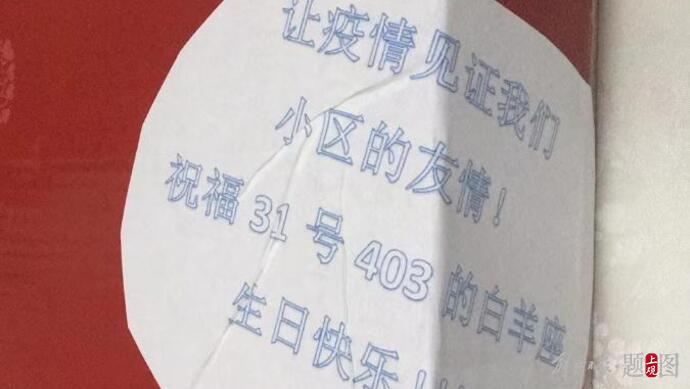 让疫情见证我们
小区的友情！
祝福31号403的白羊座
生日快乐！
上观
题图